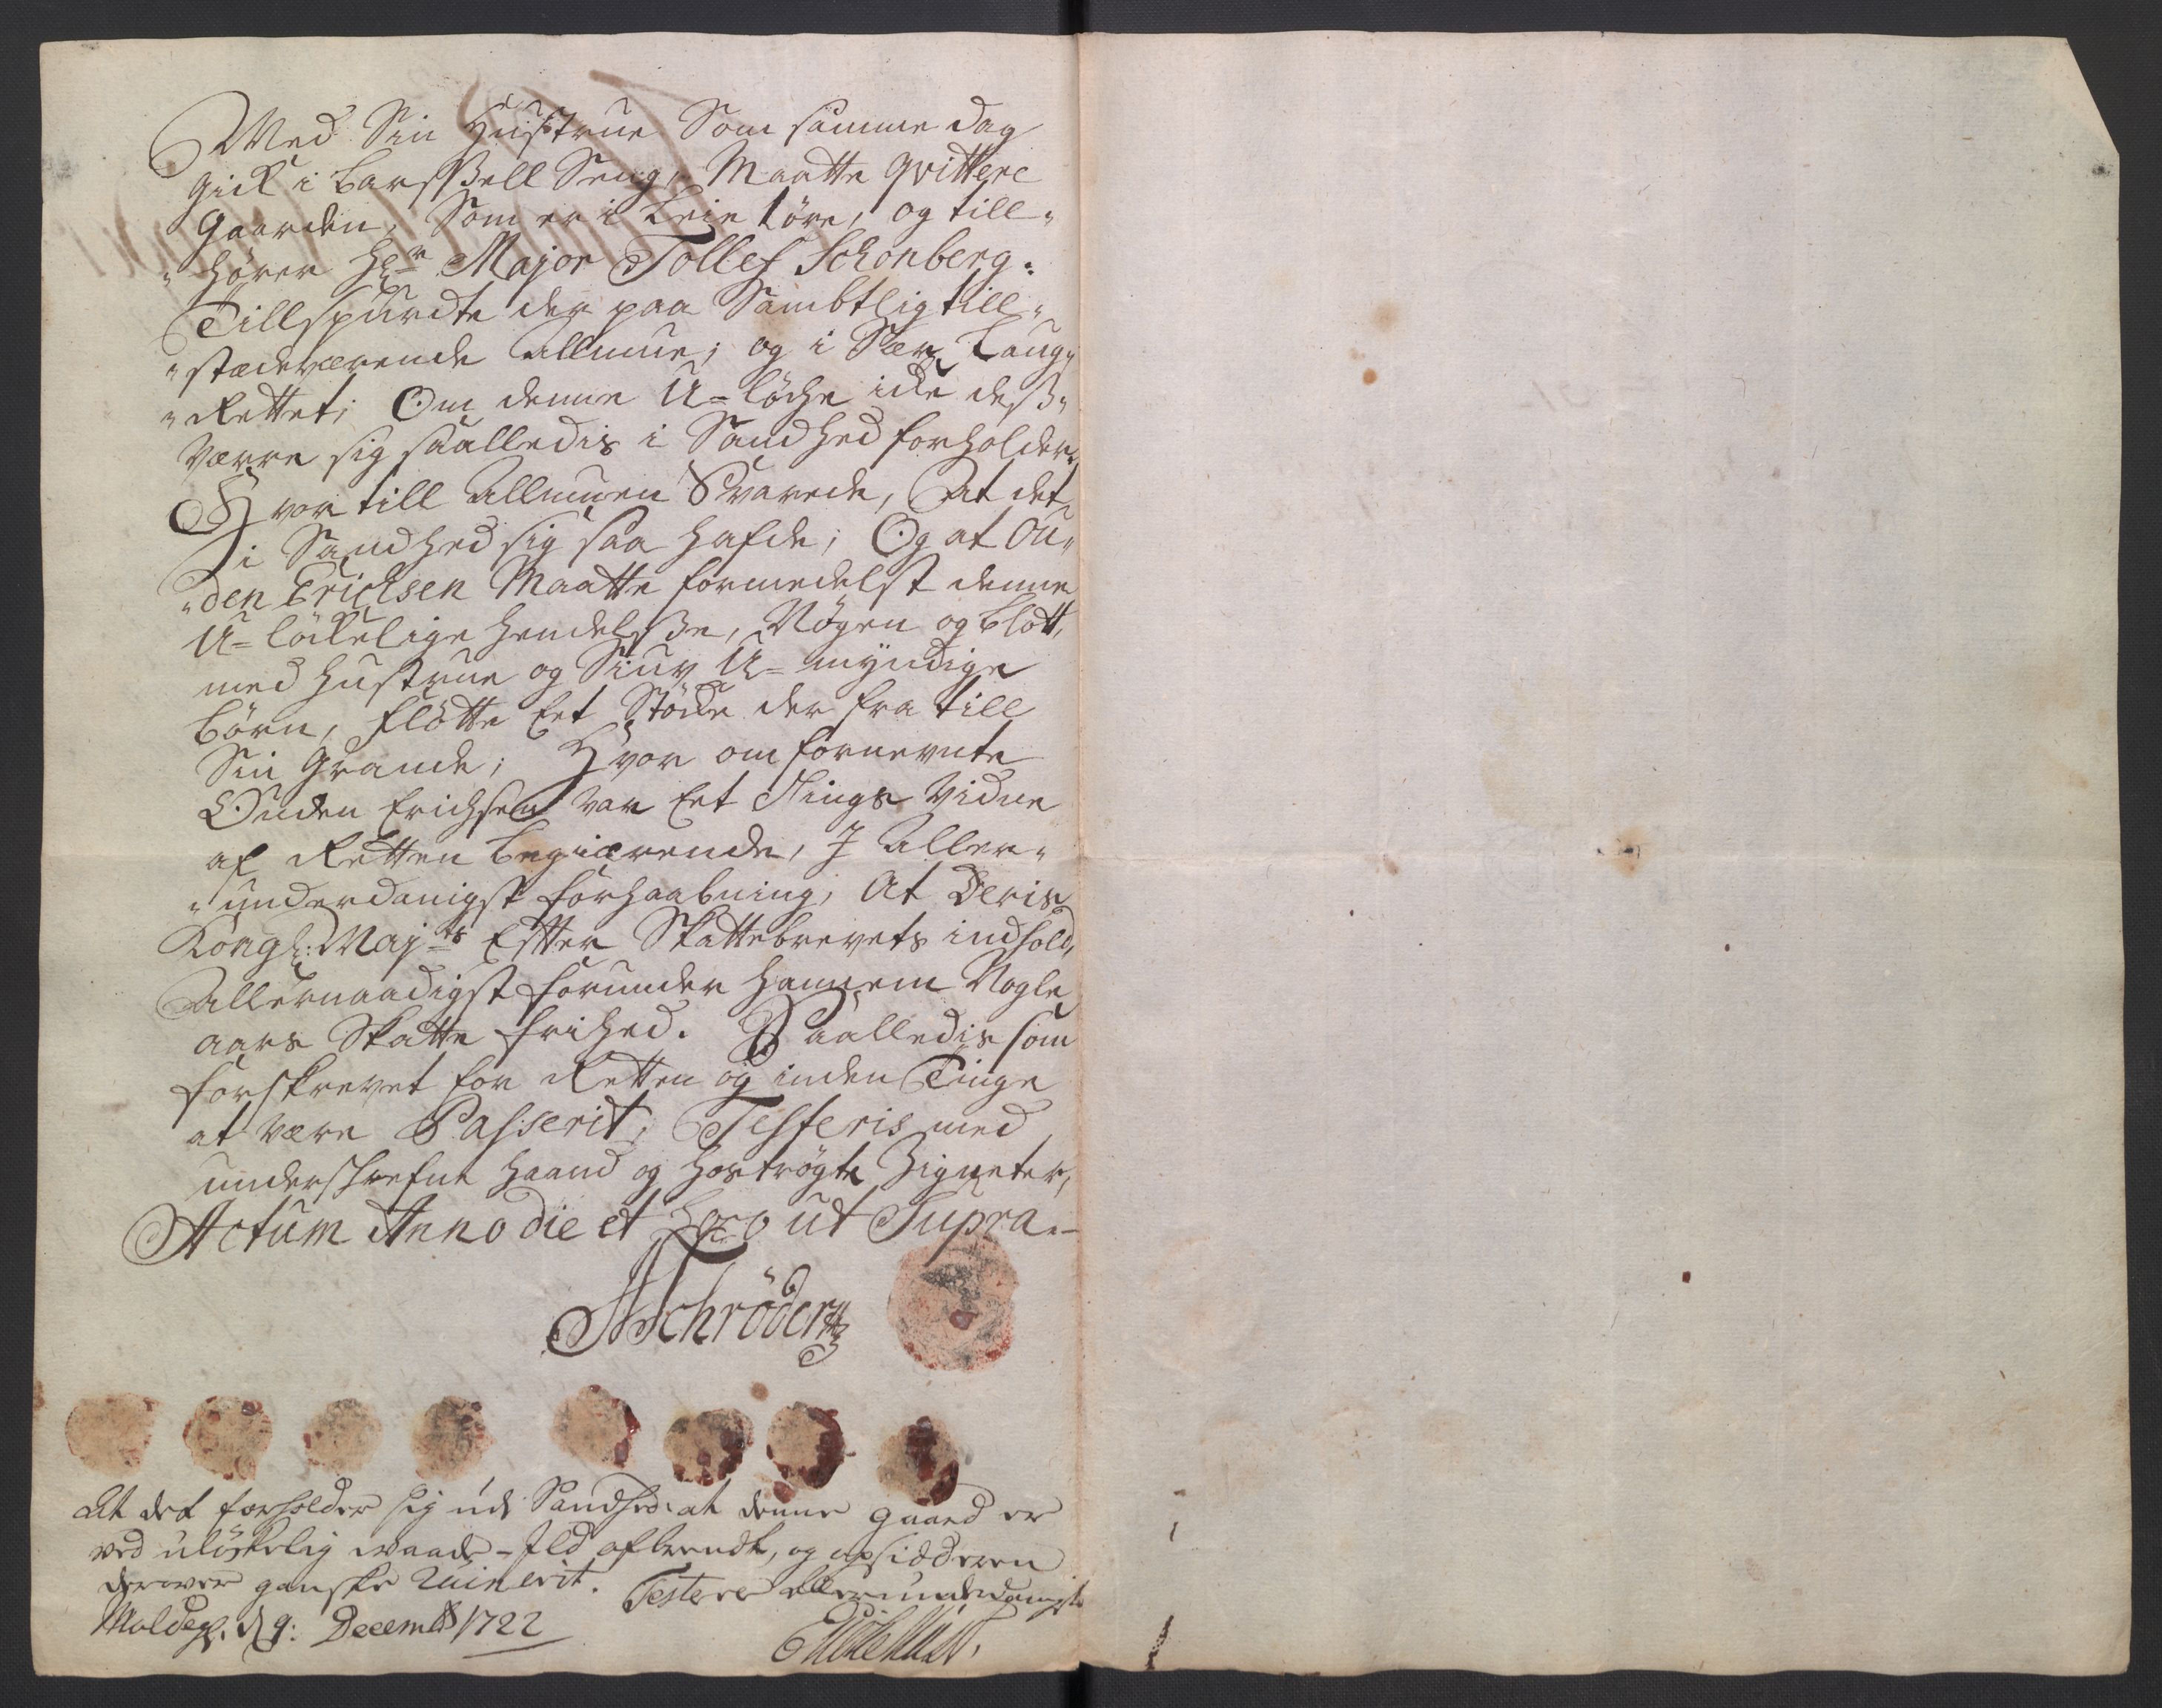 Med Sin Hustrue Som samme dag
gick i Barsßell Seng, Maatte qvittere
gaarden, Som er i Leie 1 øre, og till„
„hører Hr Major Tollef Schonberg:
Tillspurdte der paa Sambtlig till„
„stædeværende Allmue; og i Sær Laug„
„Rettet; Om denne U=löche icke deß„
værre sig saalledis i Sandhed forholder„
Hvor till Allmuen Svarede, At det
i Sandhed sig saa hafde; Og at Ou„
„den Erichsen Maatte formedelst denne
U=löckelige hendelsße, Nögen og blott,
med hustrue og Siuv U=myndige
børn, flötte Eet Støcke der fra till
Sin Grande; Hvor om fornevnte
Ouden Erichsen var Eet Tings Vidne
af Retten begiærende, J Aller„
„underdanigst forhaabning, At Deris
Kongl: Majts Effter Skattebrevets indhold,
Allernaadigst forunder hannem Nogle
aars Skatte frihed. Saalledis som
forskrevet for Retten og inden Tinge
at være Passerit; Testeris med
underschrefne haand og hoströgte Zigneter,
Actum Anno die et Loco ut Supra.-
Schröder
At det forholder sig udi Sandhed at denne gaard er
ved uløckelig waade-Ild afbrendt, og opsidderen
derover ganske Ruinerit. Testerer allerunderdanigst
Molde d 9: Decemb 1722